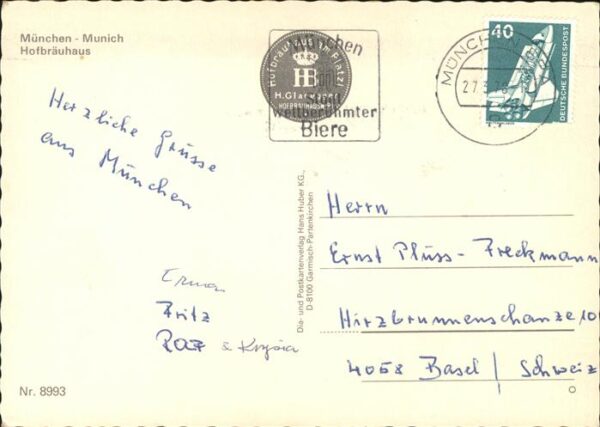 München - Munich
Hofbräuhaus
Herzliche Grüsse
aus München
Erna
Fritz
&
Nr. 8993
Dia- und Postkartenverlag Hans Huber KG.,
D-8100 Garmisch-Partenkirchen
München
HB
weltberühmter
Biere
Hofbräuhaus
Platzl
MÜNCHEN
27
40
DEUTSCHE BUNDESPOST
Herrn
Ernst Plüss-Freckmann
Hirzbrunnenschanze
4058 Basel / Schweiz